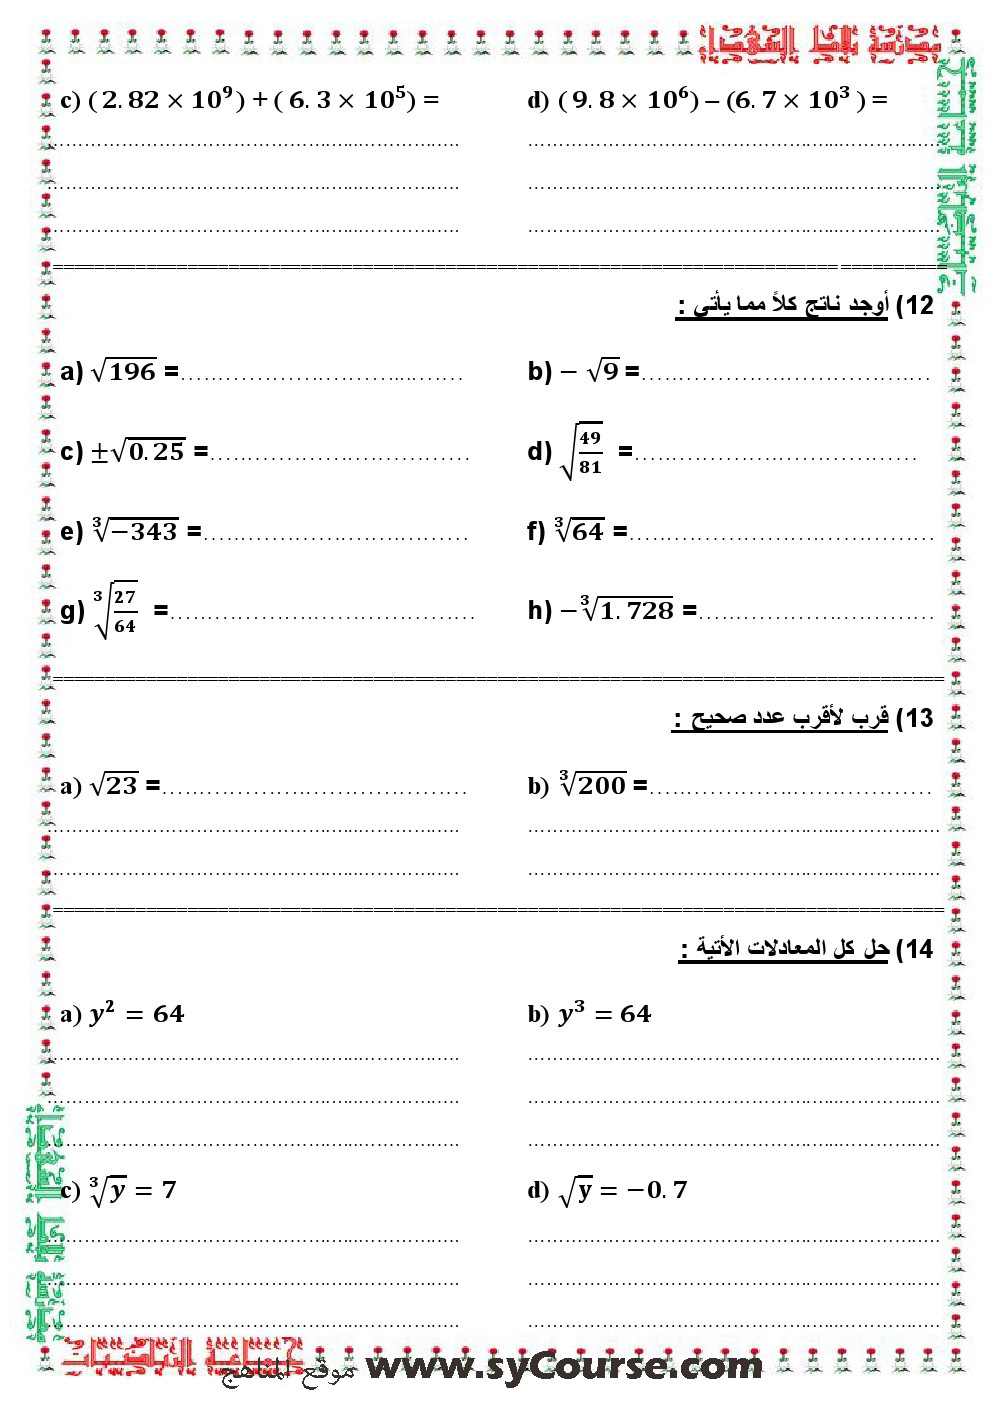 مدرسة بلاط الشهداء
c) ( 2. 82 × 10⁹ ) + ( 6. 3 × 10⁵) =
d) ( 9. 8 × 10⁶) – (6. 7 × 10³ ) =
12) أوجد ناتج كلاً مما يأتي :
a) √196 =
b) − √9 =
c) ±√0. 25 =
d) √(49/81) =
e) ³√−343 =
f) ³√64 =
g) ³√(27/64) =
h) −³√1. 728 =
13) قرب لأقرب عدد صحيح :
a) √23 =
b) ³√200 =
14) حل كل المعادلات الأتية :
a) y² = 64
b) y³ = 64
c) ³√y = 7
d) √y = −0. 7
موقع المناهج www.syCourse.com